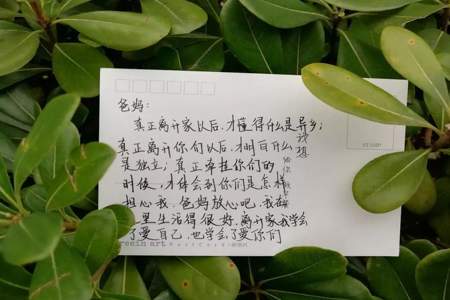 爸妈：
真正离开家以后，才懂得什么是异乡；
真正离开你们以后，才明白什么
是独立；真正牵挂你们的
时候，才体会到你们是怎样
担心我。爸妈放心吧，我在
里生活得很好。离开家我学会
了爱自己，也学会了爱你们